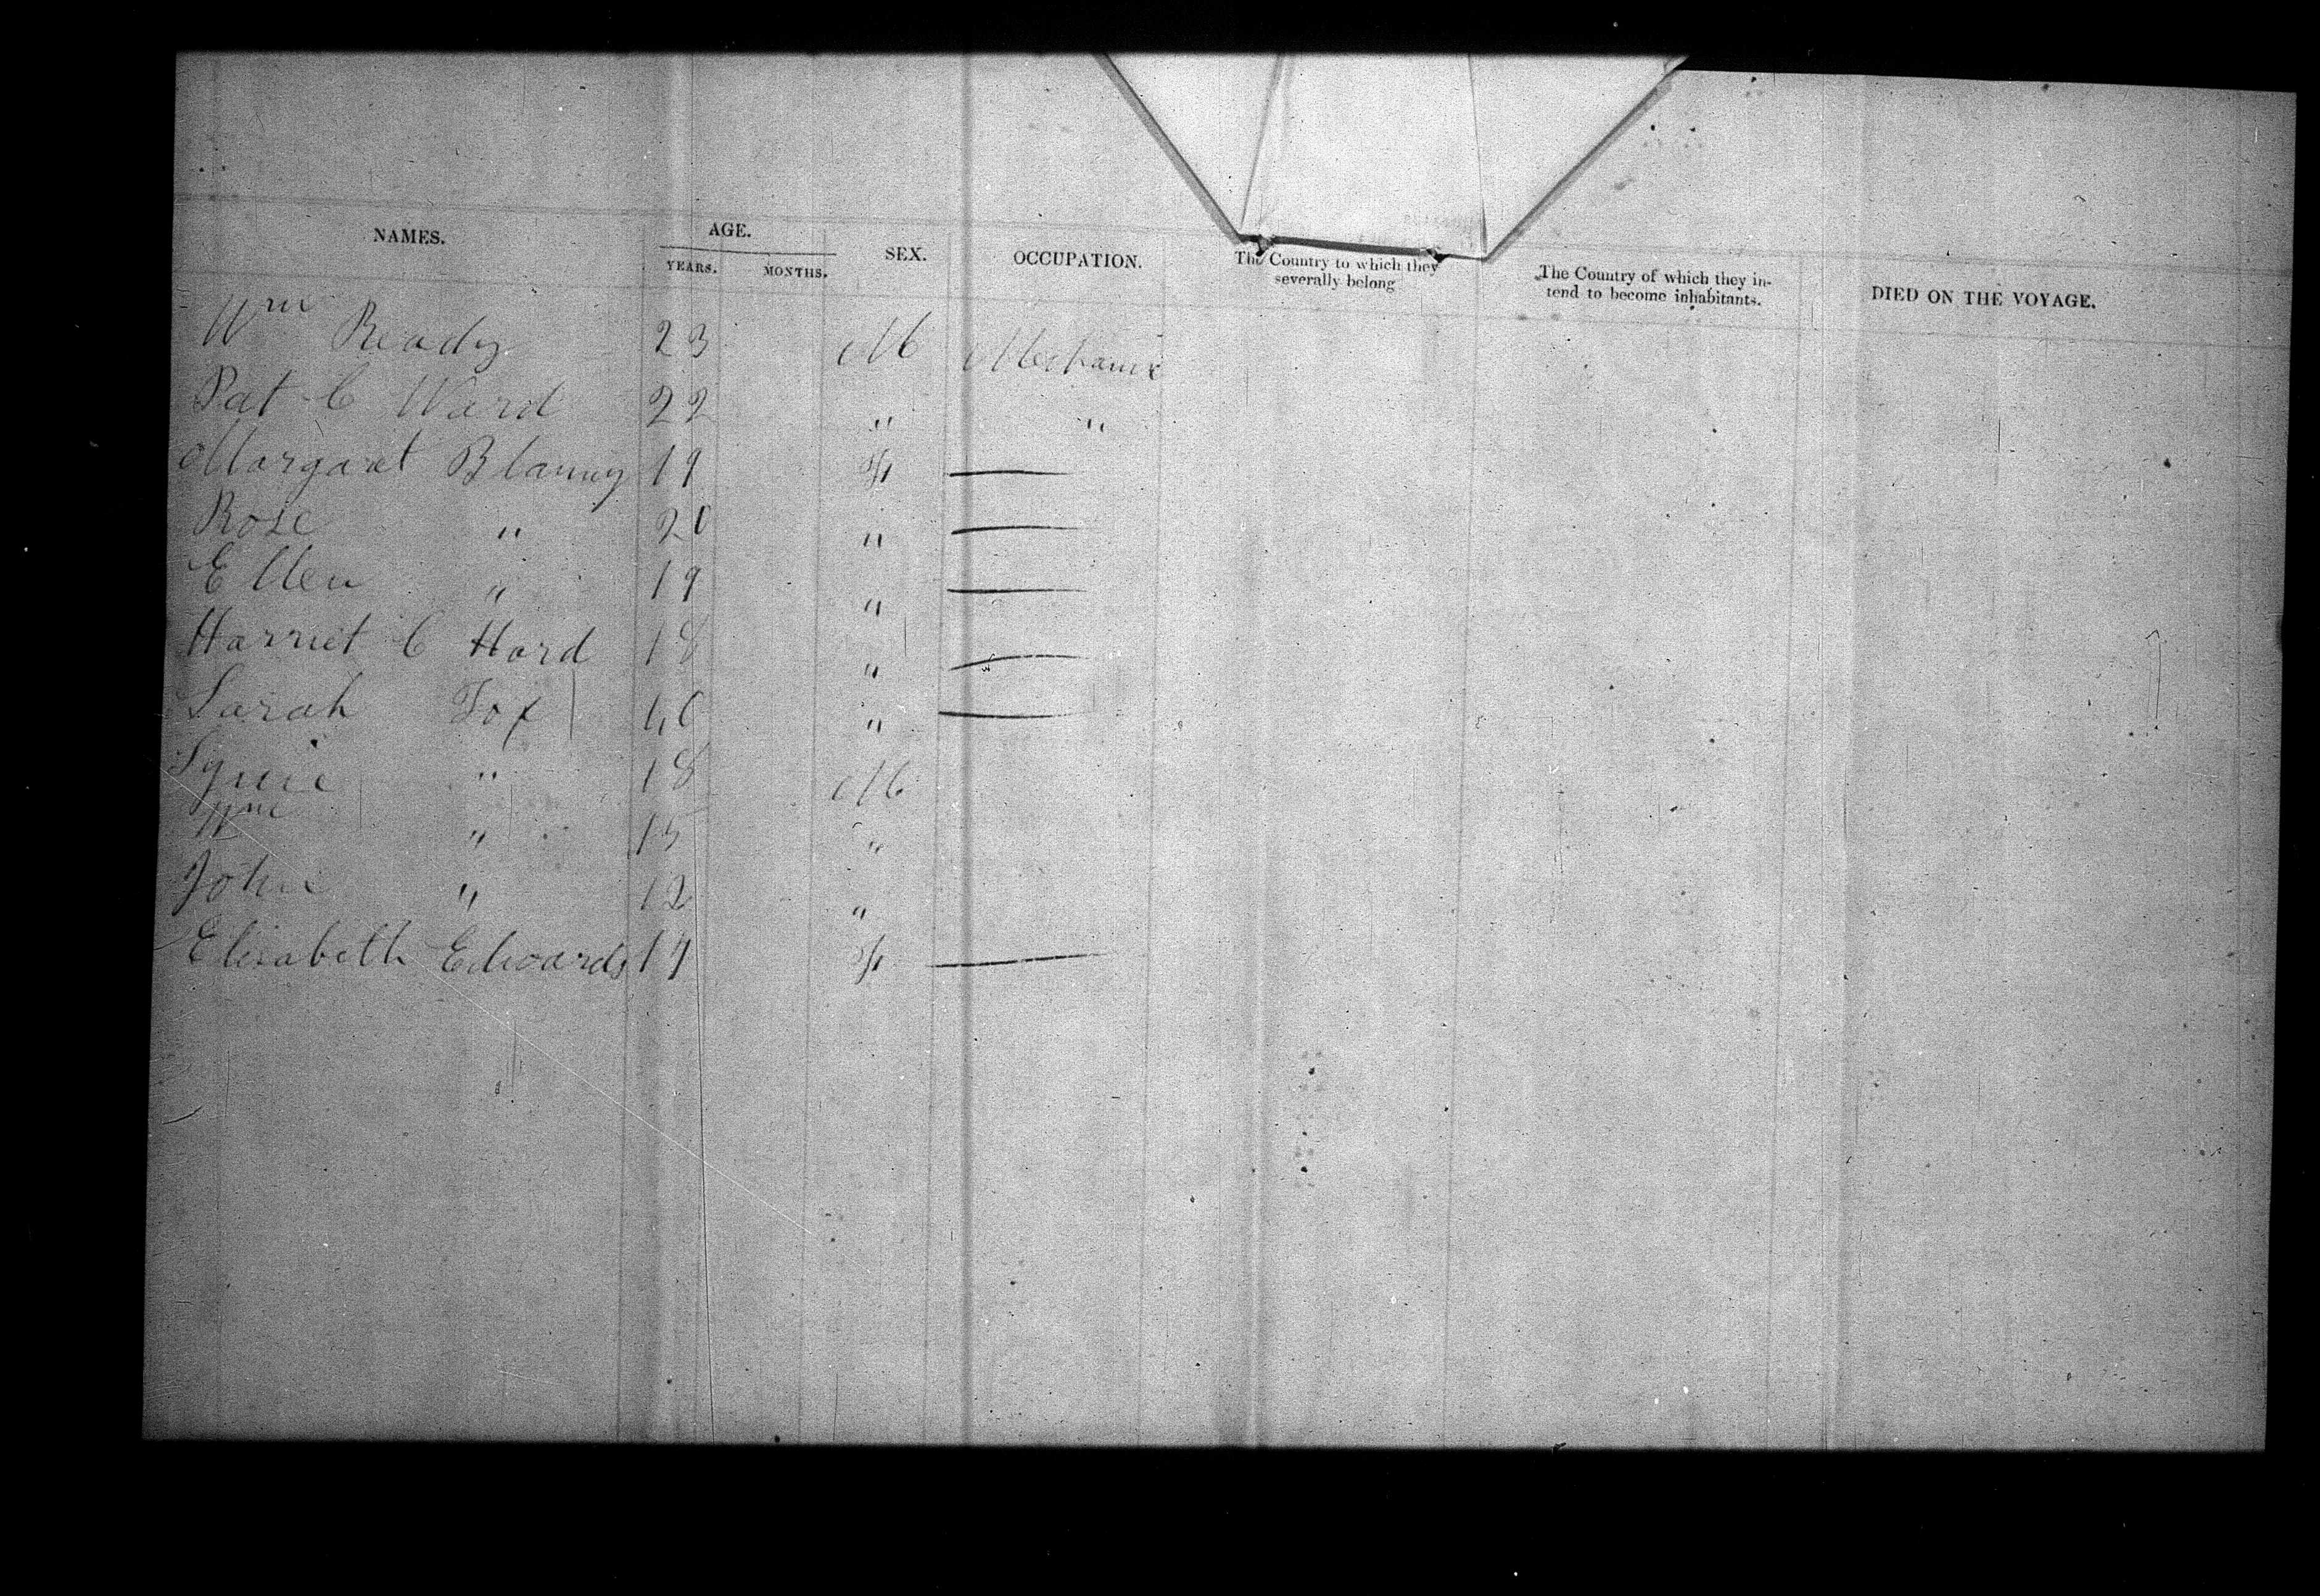 NAMES. AGE. SEX. OCCUPATION. The Country to which they severally belong The Country of which they intend to become inhabitants. DIED ON THE VOYAGE.
YEARS. MONTHS.
Wm Ready 23 M Mechanic
Pat C Ward 22 " "
Margaret Blanny 19 F —
Rose " 20 " —
Ellen " 19 " —
Harriet C Hord 18 " —
Sarah Fox 40 " —
" 18 M
Wm " 15 "
John " 12 "
Elisabeth Edwards 19 F —